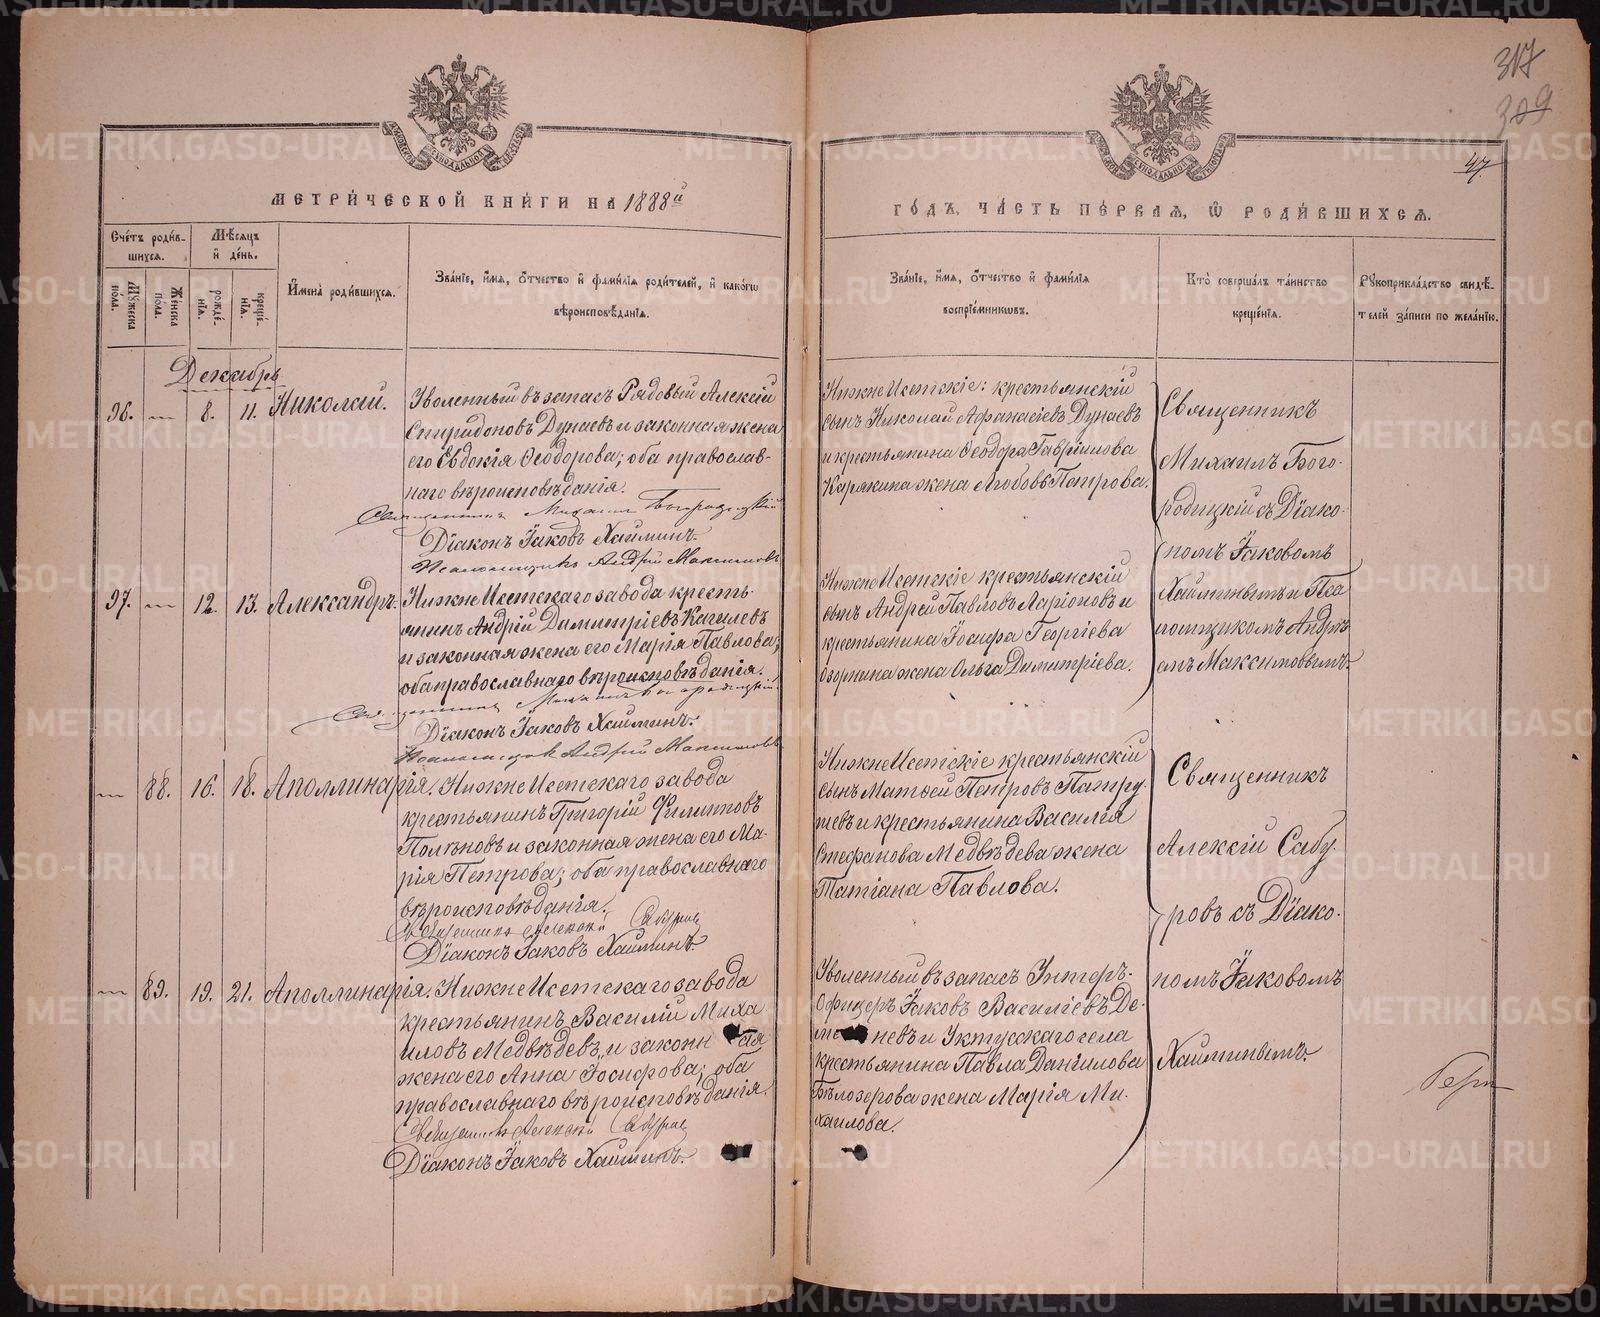 317
309
47.
МЕТРИЧЕСКОЙ КНИГИ НА 1888й
ГОДЪ, ЧАСТЬ ПЕРВАЯ, Ѡ РОДИВШИХСЯ.
Счетъ родившихся.
Мужеска пола.
Женска пола.
Мѣсяцъ и день.
рожденія.
крещенія.
Имена родившихся.
Званіе, имя, отчество и фамилія родителей, и какогѡ
вѣроисповѣданія.
Званіе, имя, отчество и фамилія
воспріемниковъ.
Кто совершалъ таинство
крещенія.
Рукоприкладство свидѣ-
телей записи по желанію.
Декабрь
96. — 8. 11. Николай.
Уволенный въ запасъ Рядовый Алексій
Спиридоновъ Дунаевъ и законная жена
его Евдокія Ѳеодорова; оба православ-
наго вѣроисповѣданія.
Священникъ Михаилъ Богородицкій
Діаконъ Іаковъ Хаиминъ.
Псаломщикъ Андрей Максимовъ
Нижне Исетскіе: крестьянскій
сынъ Николай Аѳанасіевъ Дунаевъ
и крестьянина Ѳеодора Гавріилова
Карякина жена Любовь Петрова.
Священникъ
Михаилъ Бого-
родицкій съ Діако-
номъ Іаковомъ
Хаиминымъ и Пса
ломщикомъ Андрѣ-
емъ Максимовымъ.
97. — 12. 13. Александръ.
Нижне Исетскаго завода кресть-
янинъ Андрій Димитріевъ Кагилевъ
и законная жена его Марія Павлова;
оба православнаго вѣроисповѣданія.
Священникъ Михаилъ Богородицкій
Діаконъ Іаковъ Хаиминъ.
Псаломщикъ Андрей Максимовъ
Нижне Исетскіе крестьянскій
сынъ Андрей Павловъ Ларіоновъ и
крестьянина Іосифа Георгіева
Озорнина жена Ольга Димитріева.
— 88. 16. 18. Аполлинарія.
Нижне Исетскаго завода
крестьянинъ Григорій Филипповъ
Полѣновъ и законная жена его Ма-
рія Петрова; оба православнаго
вѣроисповѣданія.
Священникъ Алексій Сабуровъ
Діаконъ Іаковъ Хаиминъ.
Нижне Исетскіе крестьянскій
сынъ Матѳей Петровъ Патру-
шевъ и крестьянина Василія
Стефанова Медвѣдева жена
Татіана Павлова.
Священникъ
Алексій Сабу
ровъ съ Діако-
номъ Іаковомъ
Хаиминымъ.
— 89. 19. 21. Аполлинарія.
Нижне Исетскаго завода
крестьянинъ Василій Миха
иловъ Медвѣдевъ, и законн ая
жена его Анна Іосифова; оба
православнаго вѣроисповѣданія.
Священникъ Алексій Сабуровъ
Діаконъ Іаковъ Хаиминъ.
Уволенный въ запасъ Унтеръ-
Офицеръ Іаковъ Василіевъ Де-
невъ и Уктусскаго села
крестьянина Павла Даніилова
Бѣлозерова жена Марія Ми-
хаилова.
METRIKI.GASO-URAL.RU